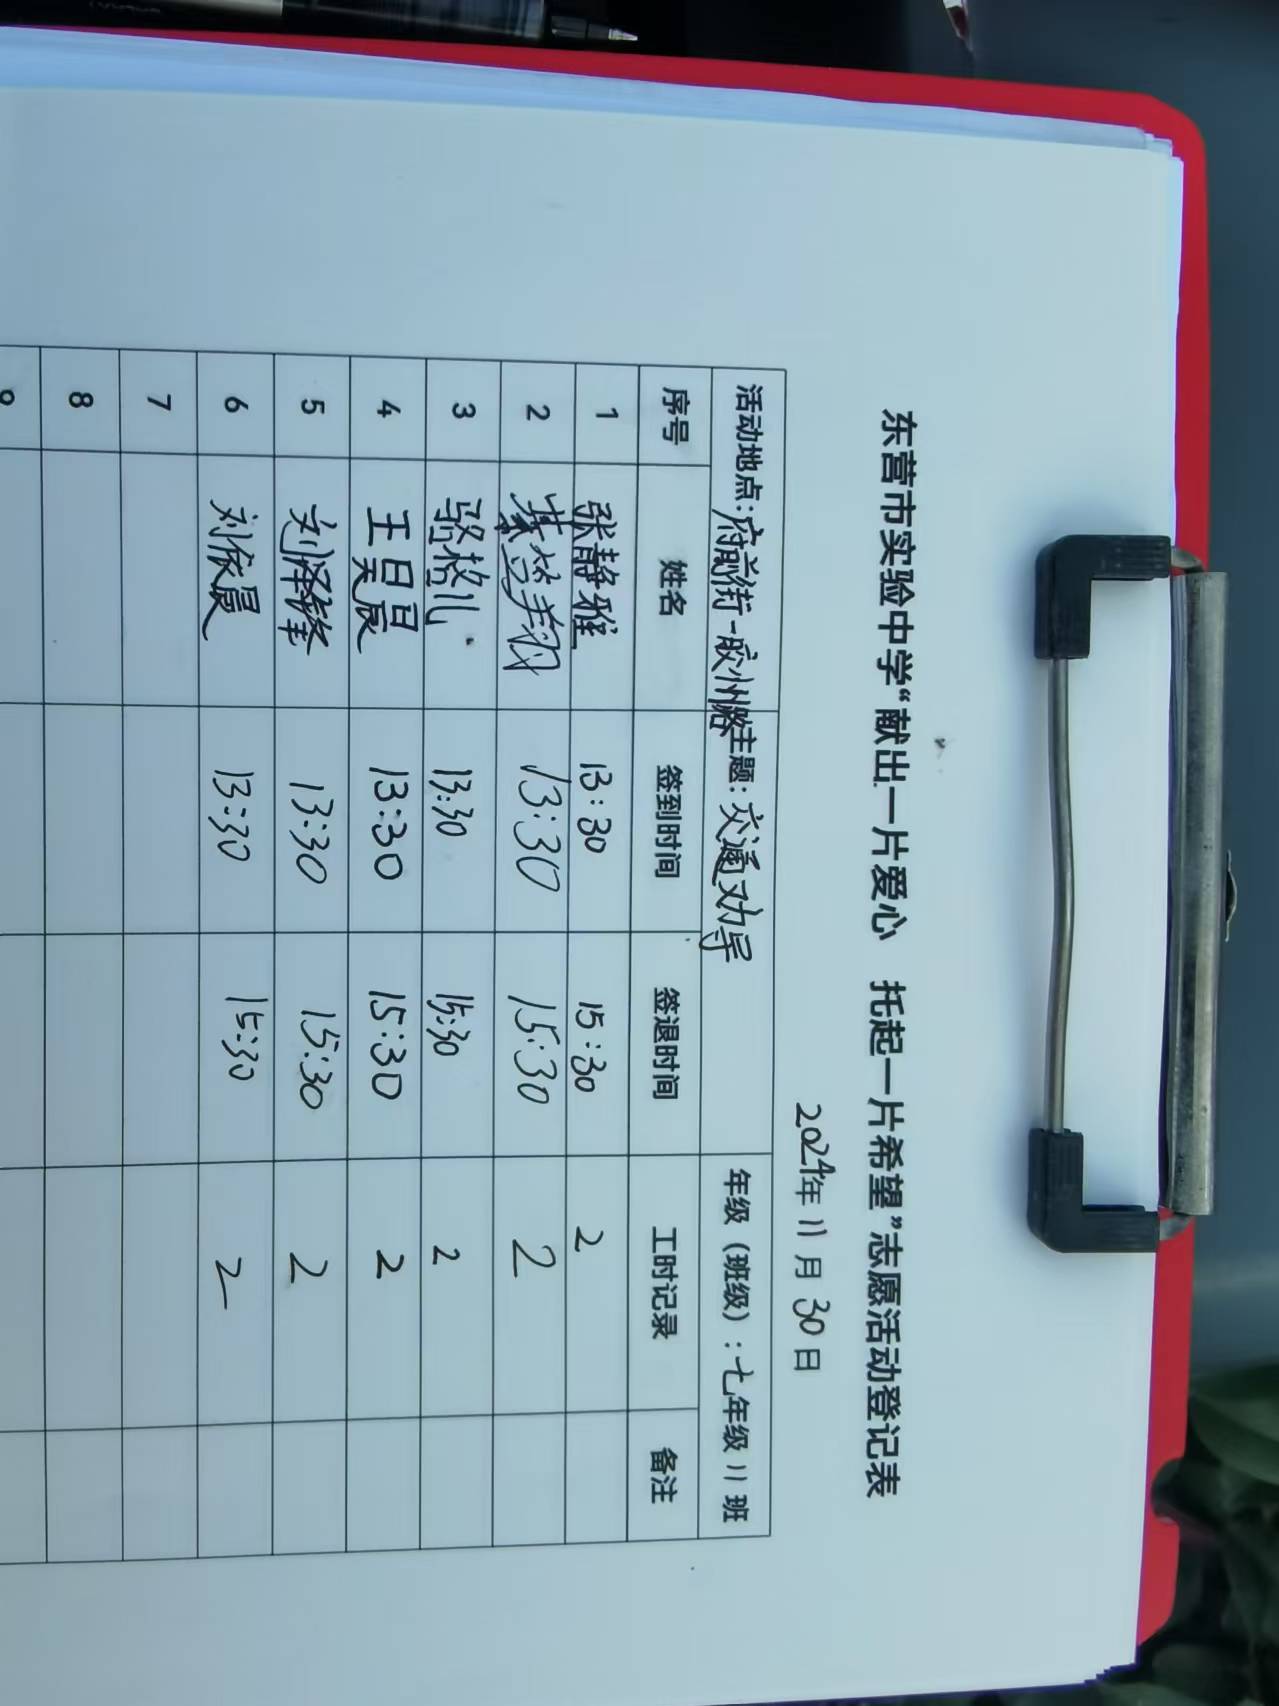 东营市实验中学“献出一片爱心 托起一片希望”志愿活动登记表
2024年11月30日
活动地点:府前街-胶州路 主题:交通劝导 年级(班级):七年级11班
序号 姓名 签到时间 签退时间 工时记录 备注
1 张静雅 13:30 15:30 2
2 13:30 15:30 2
3 骆格儿 13:30 15:30 2
4 王昊晨 13:30 15:30 2
5 刘泽锋 13:30 15:30 2
6 刘依晨 13:30 15:30 2
7
8
9